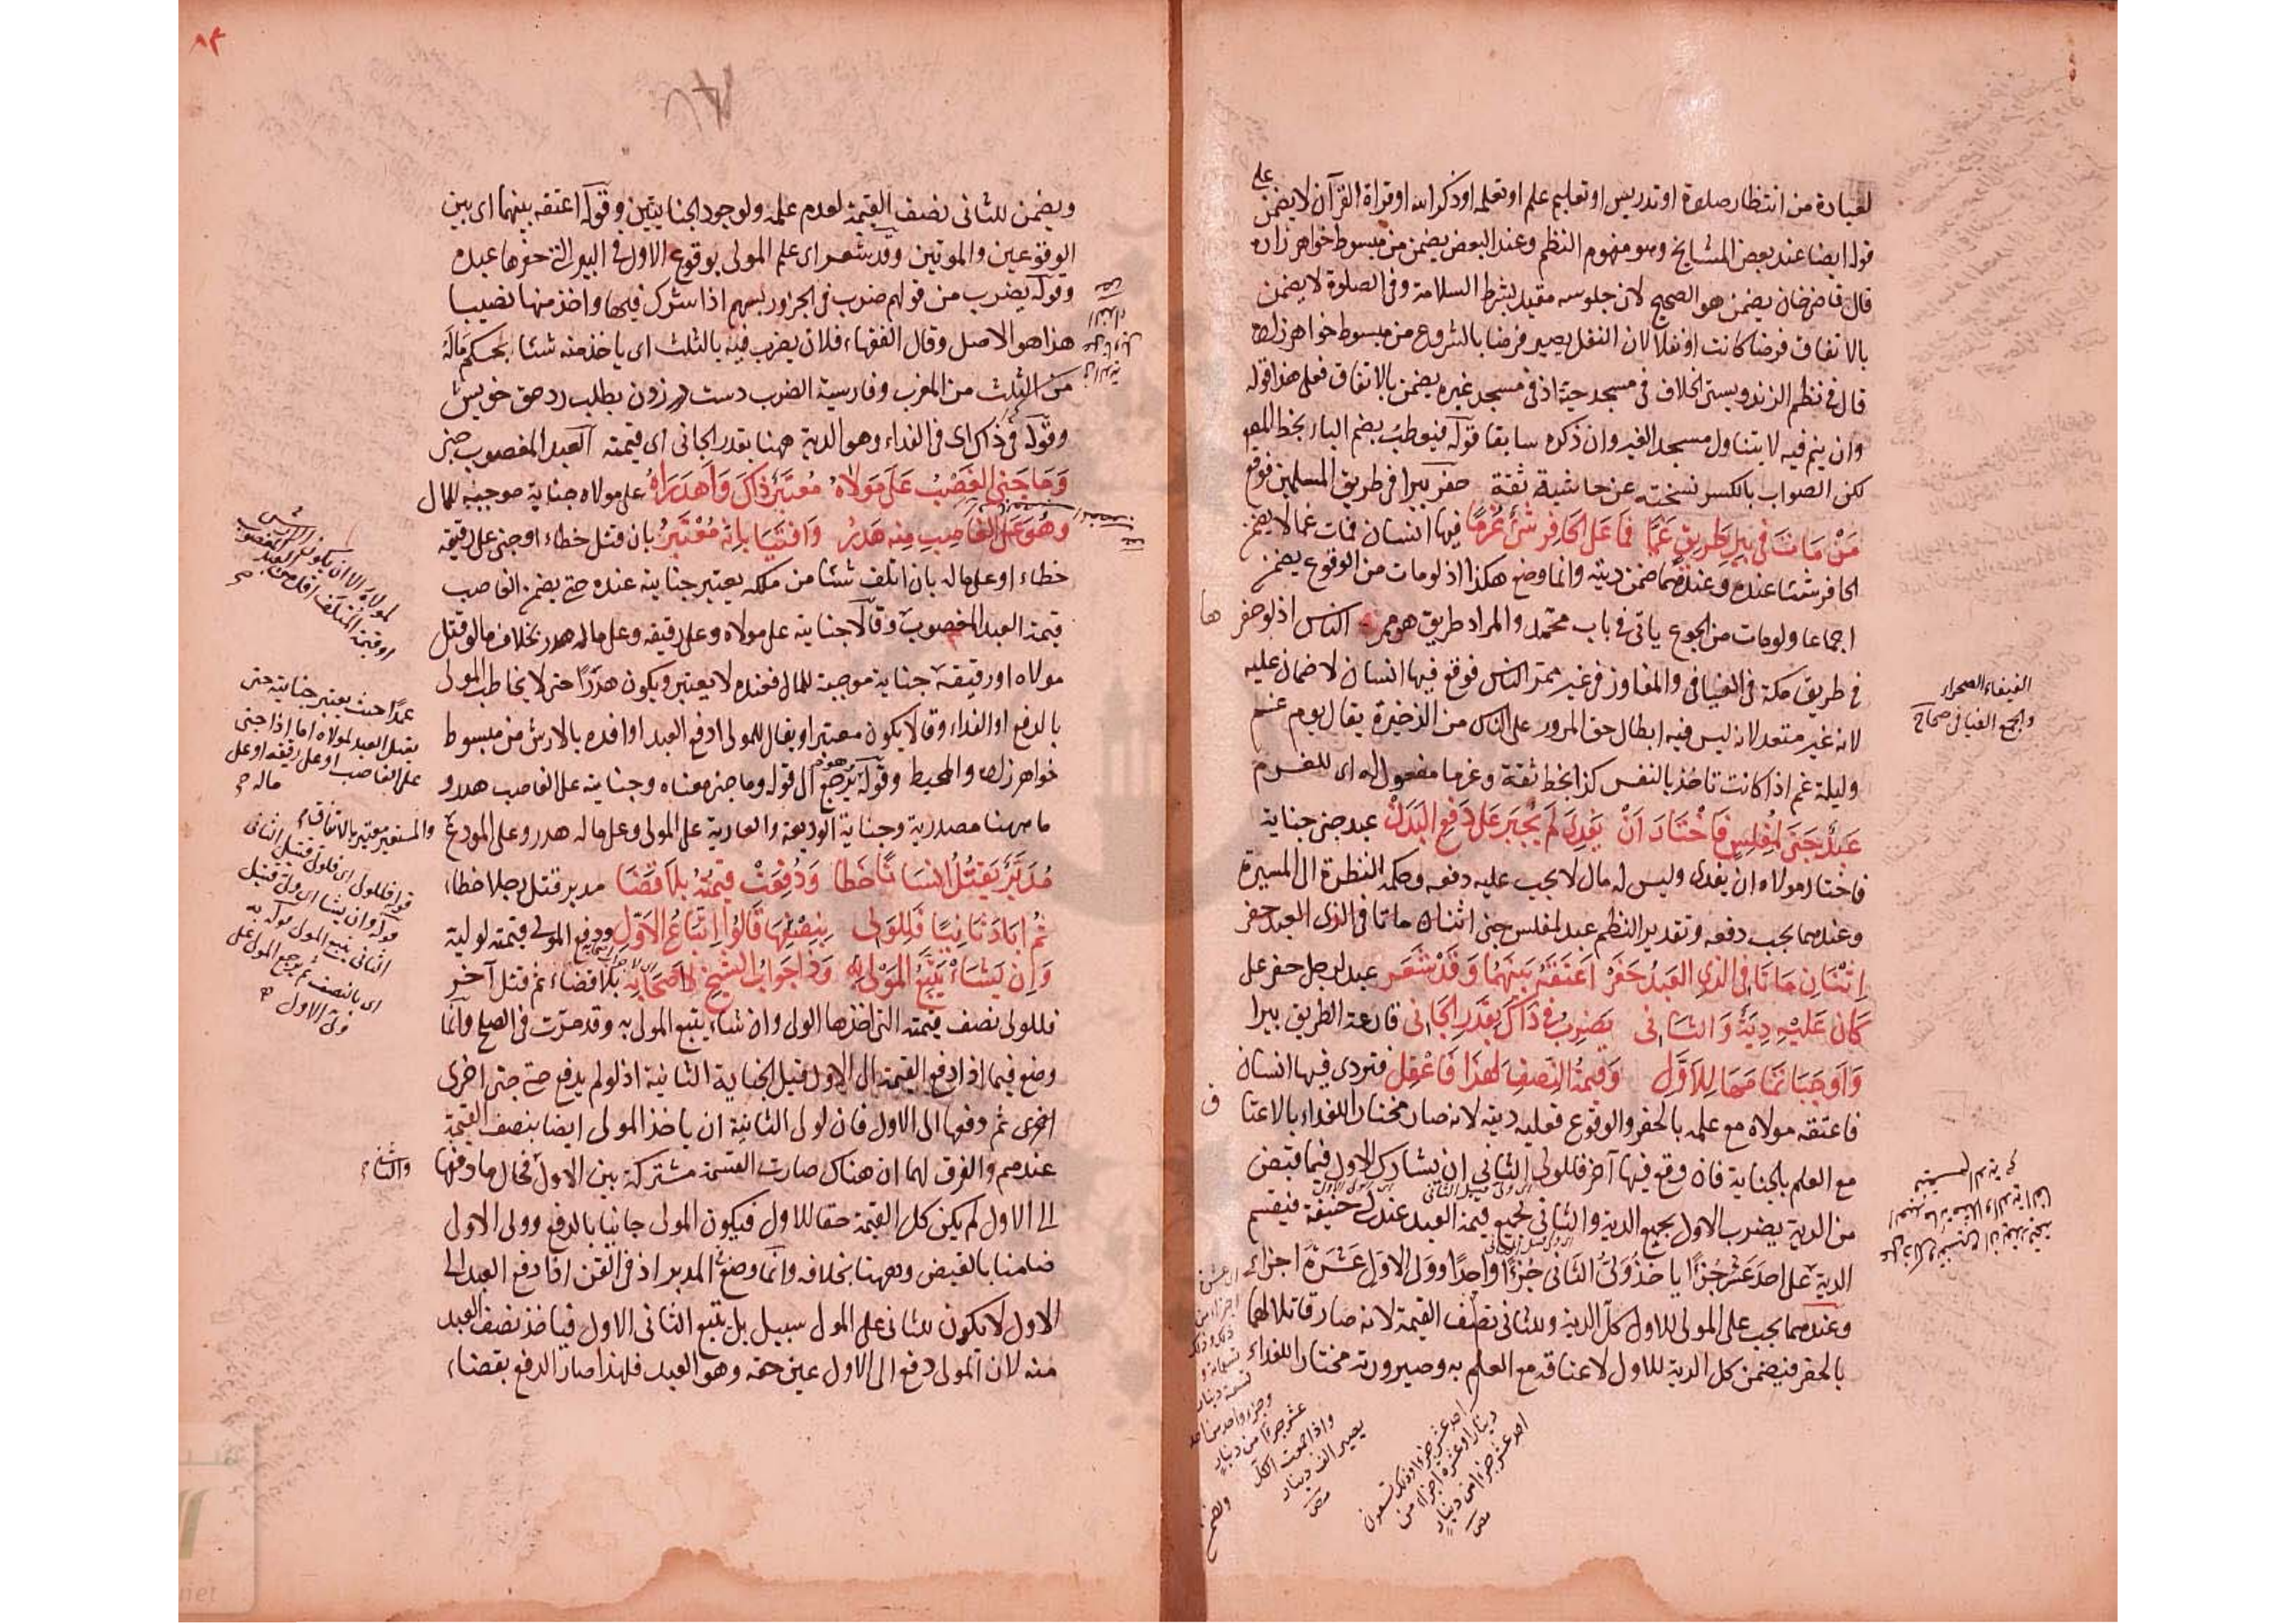 لعبادة من انتظار صلوة او تدريس او تعليم علم او تعلمه او ذكر الله او قراة القرآن لا يضمن على
قوله ايضا عند بعض المشايخ وهو مفهوم النظم وعند البعض يضمن من مبسوط خواهر زاده
قال قاضى خان يضمن هو الصحيح لان جلوسه مقيد بشرط السلامة وفى الصلوة لا يضمن
بالاتفاق فرضا كانت او نفلا لان النفل يصير فرضا بالشروع من مبسوط خواهر زاده
قال فى نظم الزندويستى الخلاف فى مسجد حيه اذ فى مسجد غيره يضمن بالاتفاق فعلى هذا قوله
وان ينم فيه لا يتناول مسجد الغير وان ذكره سابقا قوله فيعطب بضم الباء بخط المص
لكن الصواب بالكسر نسخته عن حاشية ثقة حفر بيرا فى طريق المسلمين فوقع
مَنْ مَاتَ فى بيرِ طَريقٍ غَمًّا فَمَا عَلَى الحَافِرِ شَئٌ غُرمًا فيها انسان فمات غما لا يضمن
الحافر شئا عنده وعندهما ضمن ديته وانما وضع هكذا اذ لو مات من الوقوع يضمن
اجماعا ولو مات من الجوع ياتى فى باب محمد والمراد طريق هو ممر الناس اذ لو حفر ها
فى طريق مكة فى الفيافى والمفاوز فى غير ممر الناس فوقع فيها انسان لا ضمان عليه
لانه غير متعد لانه ليس فيه ابطال حق المرور على الناس من الذخيرة يقال يوم غم
وليلة غم اذا كانت تاخذ بالنفس كذا بخط ثقة وغرما مفعول له اى للغرم
عَبدٌ جَنَى لِمُفلِسٍ فَاخْتَارَ اَنْ يَفدِىَ لَم يُجبَر عَلى دَفعِ البَدَنْ عبد جنى جناية
فاختار مولاه ان يفدى وليس له مال لا يجب عليه دفعه وحكمه النظرة الى الميسرة
وعندهما يجب دفعه وتقدير النظم عبد لمفلس جنى اثنان ماتا فى الذى العبد حفر
اِثْنَانِ مَاتَا فِى الَّذِى العَبدُ حَفَرْ اَعتَقَهُ بَينَهُمَا وَقَدْ شَعَر عبد لرجل حفر على
كَانَ عَلَيْهِ دِيَةٌ وَالثَّانى يَضرِبُ فى ذَاكَ بِقَدرِ الجَانى قارعة الطريق بيرا
وَاَوجَبَا تمَامَهَا لِلاَوَّلِ وَقِيمَةُ النِّصفِ لِهذَا فَاعْقِل فتردى فيها انسان
فاعتقه مولاه مع علمه بالحفر والوقوع فعليه ديته لانه صار مختارا للفداء بالاعتا ق
مع العلم بالجناية فان وقع فيها آخر فللولى الثانى ان يشارك الاول فيما قبض
من الدية يضرب الاول بجميع الدية والثانى بجميع قيمة العبد عند ابى حنيفة فيقسم
الدية على احد عشر جزءا ياخذ ولى الثانى جزءا واحدا وولى الاول عشرة اجزاء
وعندهما يجب على المولى للاول كل الدية وللثانى نصف القيمة لانه صار قاتلا لهما
بالحفر فيضمن كل الدية للاول لاعتاقه مع العلم به وصيرورته مختارا للفداء
الفيفاء الصحراء
والجمع الفيافى صحاح
احد عشر جزءا وذلك تسعون
دينارا وعشرة اجزاء من
احد عشر جزءا من دينار
وجزء واحد من احد
عشر جزءا من دينار
واذا جمعت الكل
يصير الف دينار
ويضمن
٨٣
ويضمن للثانى نصف القيمة لعدم علمه ولوجود الجنايتين وقوله اعتقه بينهما اى بين
الوقوعين والموتين وقد شعر اى علم المولى بوقوع الاول فى البير التى حفرها عبده
وقوله يضرب من قولهم ضرب فى الجزور بسهم اذا شرك فيها واخذ منها نصيبا
هذا هو الاصل وقال الفقهاء فلان يضرب فيه بالثلث اى ياخذ منه شئا بحكم ماله
من الثلث من المغرب وفارسية الضرب دست در زدن بطلب رد حق خويش
وقوله فى ذاك اى فى الفداء وهو الدية ههنا بقدر الجانى اى قيمته العبد المغصوب جنى
وَمَا جَنى الغَصْبُ عَلَى مَولَاهُ مُعتَبَرٌ ذَاكَ وَاَهدَرَاهُ على مولاه جناية موجبة للمال
وهُوَ عَلَى الغَاصِبِ مِنه هَدَرُ وَافتَيَا بِاَنَّهُ مُعْتَبَرُ بان قتل خطاء او جنى على رقيقه
خطاء او على ماله بان اتلف شئا من ملكه يعتبر جنايته عنده حتى يضمن الغاصب
قيمة العبد المغصوب وقالا جنايته على مولاه وعلى رقيقه وعلى ماله هدر بخلاف ما لو قتل
مولاه او رقيقه جناية موجبة للمال فعنده لا يعتبر ويكون هدرا حتى لا يخاطب المولى
بالدفع او الفداء وقالا يكون معتبرا ويقال للمولى ادفع العبد او افده بالارش من مبسوط
خواهر زاده والمحيط وقوله وهو يرجع الى قوله وما جنى معناه وجنايته على الغاصب هدر و
ما ههنا مصدرية وجناية الوديعة والعارية على المولى وعلى ماله هدر وعلى المودع
مُدَبَّرٌ يَقتُلُ اِنسَانًا خَطَا وَدُفِعَتْ قِيمَتُهُ بِلَا قَضَا مدبر قتل رجلا خطاء
ثُمَّ اَبَادَ ثَانِيًا فَلِلوَلى بِنِصْفِهَا قَالُوا اتِّبَاعُ الاَوَّلِ ودفع المولى قيمته لوليه
وَاِن يَشَاءْ يَتْبَعُ المَوْلى بِهِ وَذَا جَوَابُ الشَّيخِ لَا صَحَابِهِ بلا قضاء ثم قتل آخر
فللولى نصف قيمته التى اخذها الولى وان شاء يتبع المولى به وقد مرت فى الصلح وانما
وضع فيما اذا دفع القيمة الى الاول قبل الجناية الثانية اذ لو لم يدفع حتى جنى اخرى
اخرى ثم دفعها الى الاول فان لولى الثانية ان ياخذ المولى ايضا بنصف القيمة
عندهم والفرق لهما ان هناك صارت القيمة مشتركة بين الاول فحال ما دفعها
الى الاول لم يكن كل القيمة حقا للاول فيكون المولى جانيا بالدفع وولى الاولى
ضامنا بالقبض وههنا بخلافه وانما وضع المدبر اذ فى القن اذا دفع العبد الى
الاول لا يكون للثانى على المولى سبيل بل يتبع الثانى الاول فياخذ نصف العبد
منه لان المولى دفع الى الاول عين حقه وهو العبد فلهذا صار الدفع بقضاء
لمولاه الا ان يكون الارش
او قيمة المتلف اقل من العبد
عمدا حيث يعتبر جنايته حتى
يقتل العبد لمولاه اما اذا جنى
على الغاصب او على رقيقه او على
ماله
والمستعير معتبر بالاتفاق
قوله فللولى اى فلولى قتيل الثانى
قوله وان يشا اى ولى قتيل
الثانى يتبع المولى قوله به
اى بالنصف ثم يرجع المولى على
ولى الاول
والثانى